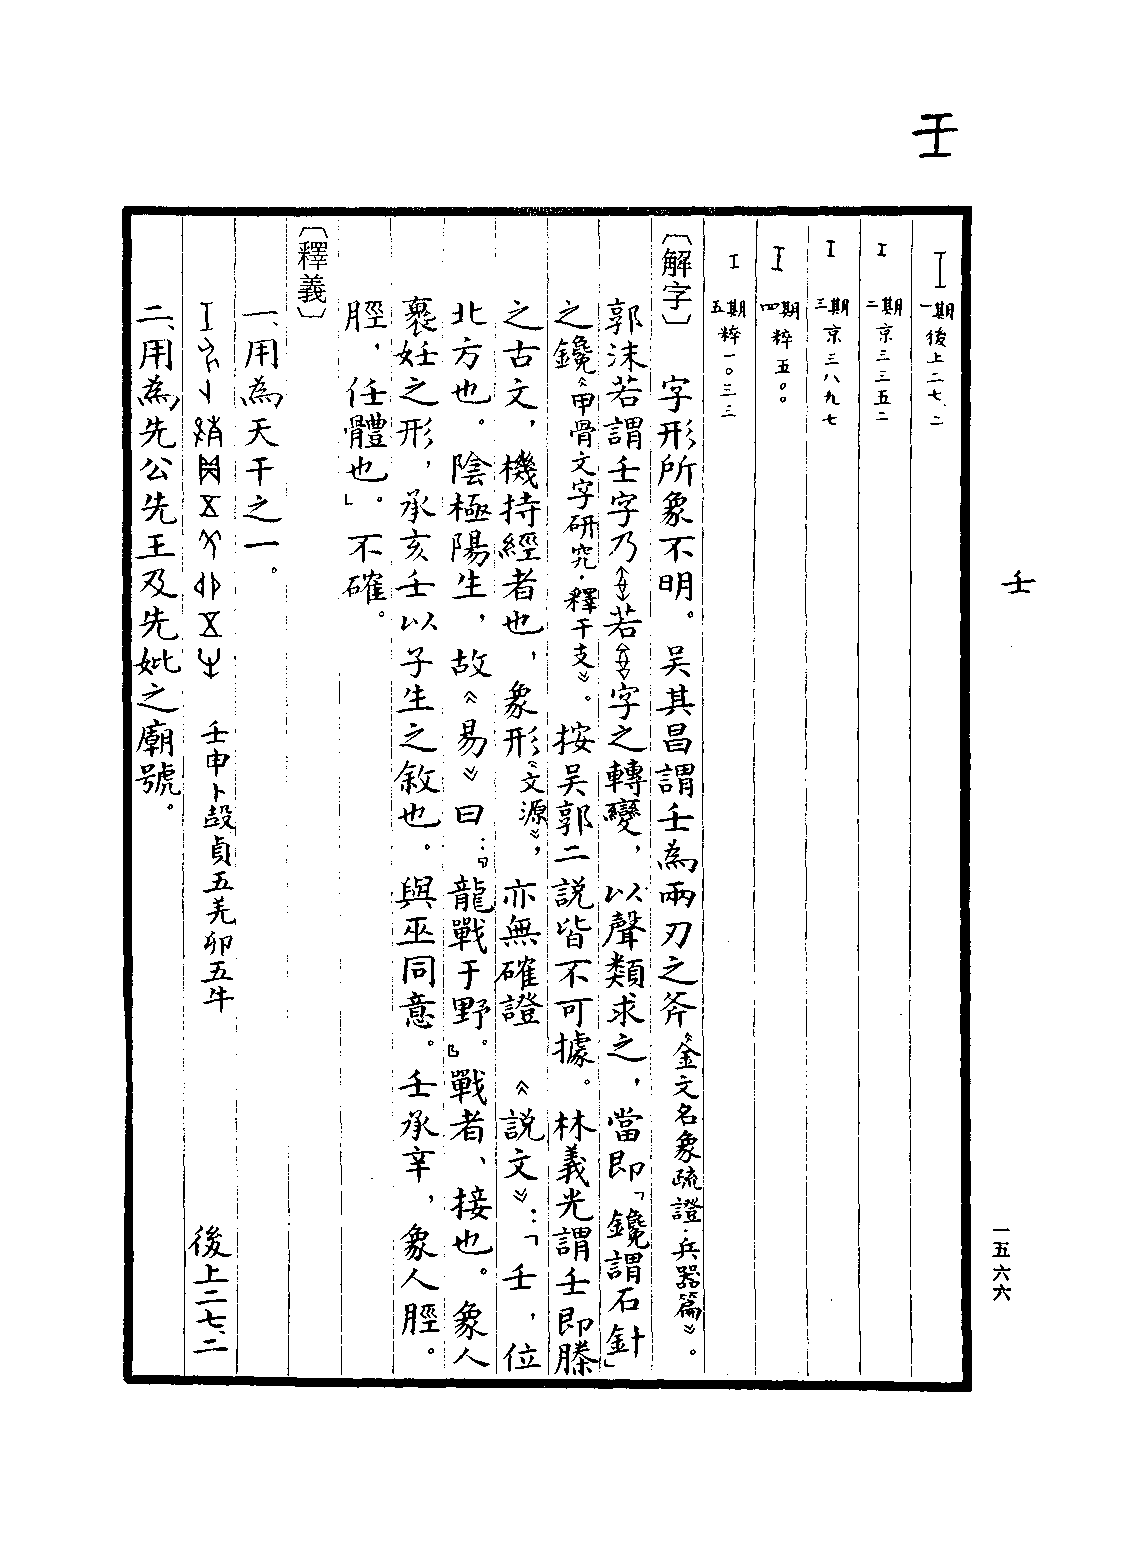 壬
壬
一五六六
一期 後上二七.二
二期 京三三五二
三期 京三八九七
四期 粹五〇〇
五期 粹一〇三三
〔解字〕 字形所象不明。吴其昌謂壬為兩刃之斧《金文名象疏證·兵器篇》。
郭沫若謂壬字乃若字之轉變，以聲類求之，當即「鑱謂石針」
之鑱《甲骨文字研究·釋干支》。按吴郭二説皆不可據。林義光謂壬即滕
之古文，機持經者也，象形《文源》，亦無確證 《説文》：「壬，位
北方也。陰極陽生，故《易》曰：『龍戰于野。』戰者、接也。象人
褢妊之形，承亥壬以子生之敘也。與巫同意。壬承辛，象人脛。
脛，任體也」。不確。
〔釋義〕
一、用為天干之一。
壬申卜㱿貞五羌卯五牛 後上二七.二
二、用為先公先王及先妣之廟號。